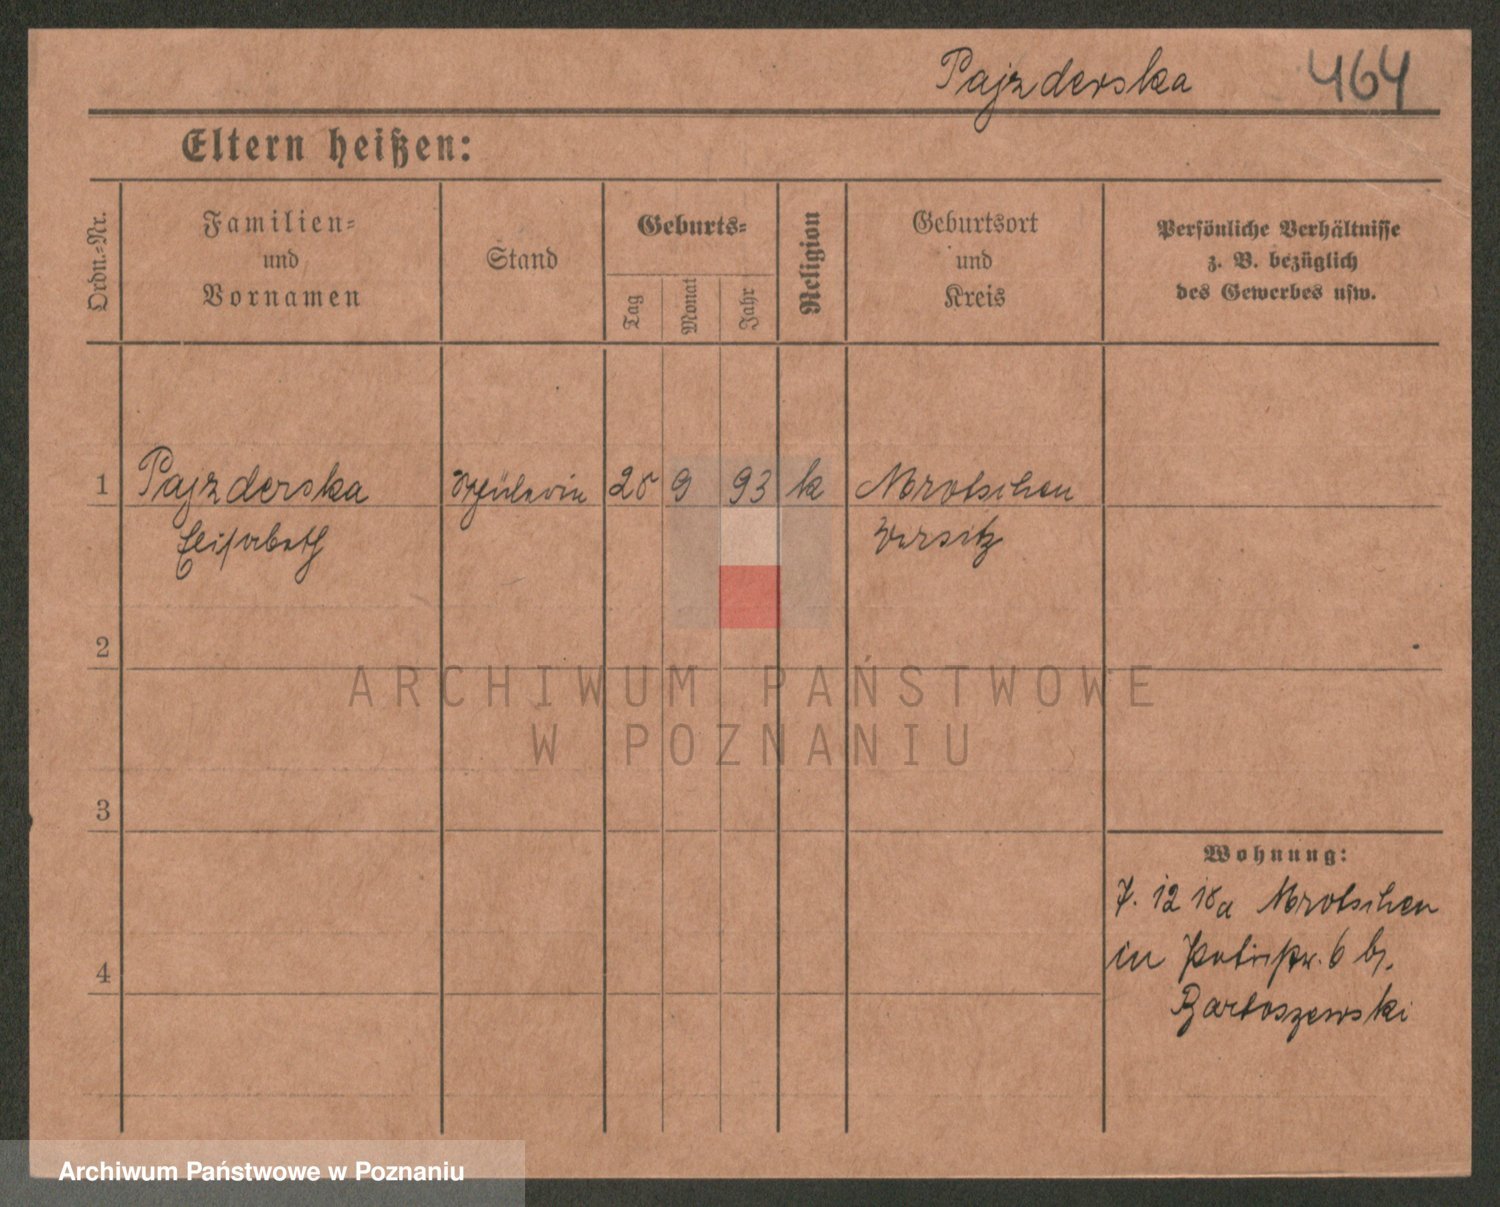 Pajzderska 464
Eltern heißen:
Ordn.-Nr.
Familien-
und
Vornamen
Stand
Geburts-
Tag
Monat
Jahr
Religion
Geburtsort
und
Kreis
Persönliche Verhältnisse
z. B. bezüglich
des Gewerbes usw.
1 Pajzderska Schülerin 28 9 93 k Mrotschen
Elisabeth Wirsitz
2
3
4
Wohnung:
7. 12 18a Mrotschen
in 6 b.
Bartoszewski
ARCHIWUM PAŃSTWOWE
W POZNANIU
Archiwum Państwowe w Poznaniu